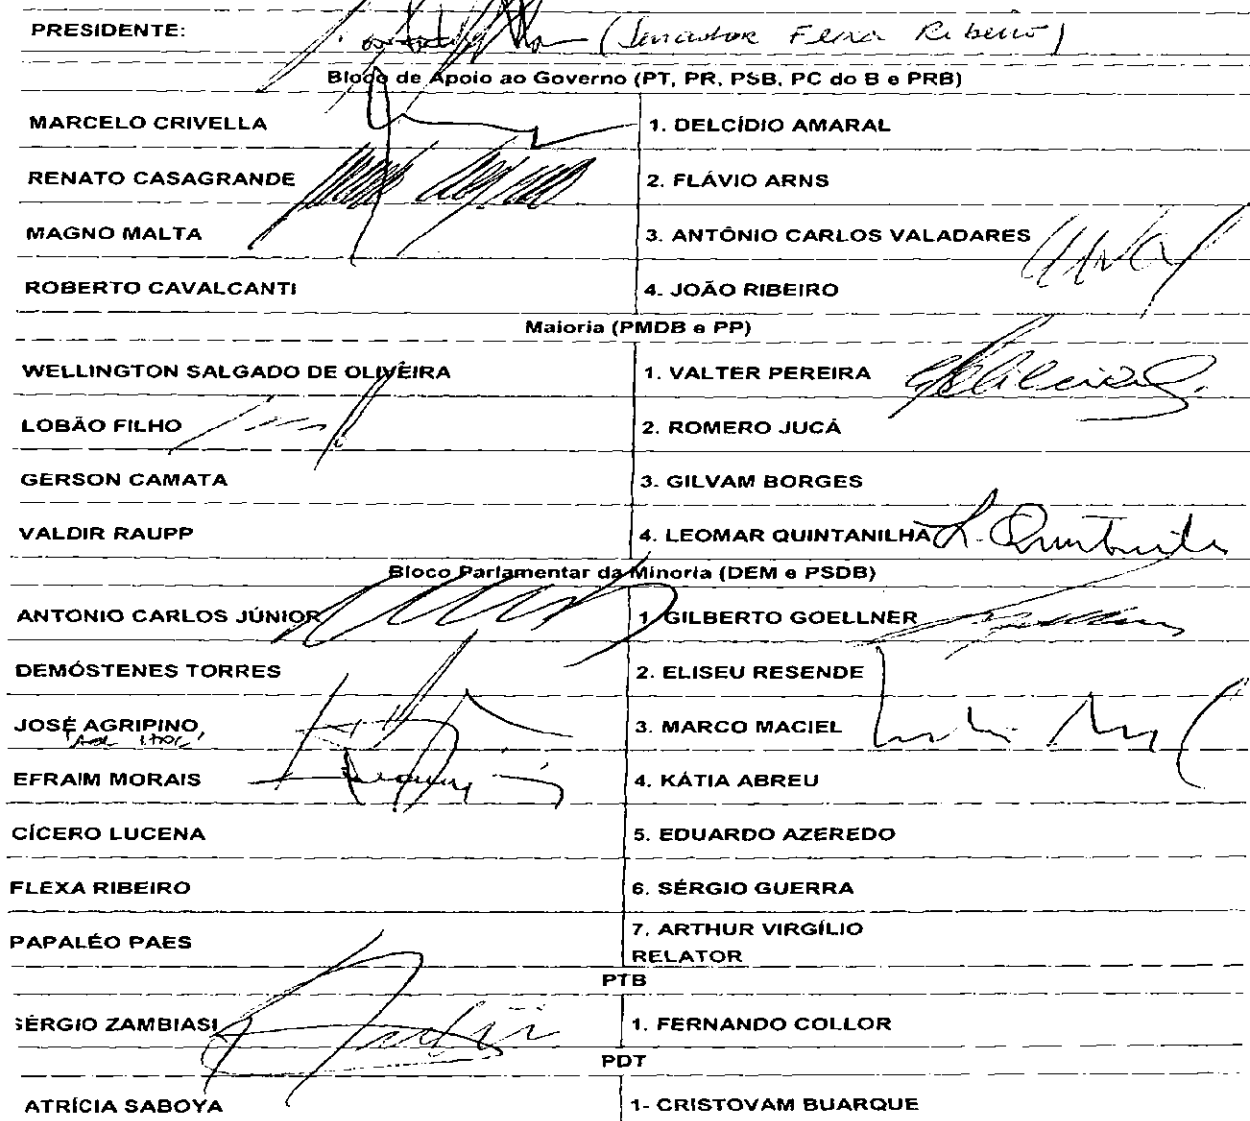 PRESIDENTE: (Senador Flexa Ribeiro)
Bloco de Apoio ao Governo (PT, PR, PSB, PC do B e PRB)
MARCELO CRIVELLA 1. DELCÍDIO AMARAL
RENATO CASAGRANDE 2. FLÁVIO ARNS
MAGNO MALTA 3. ANTÔNIO CARLOS VALADARES
ROBERTO CAVALCANTI 4. JOÃO RIBEIRO
Maioria (PMDB e PP)
WELLINGTON SALGADO DE OLIVEIRA 1. VALTER PEREIRA
LOBÃO FILHO 2. ROMERO JUCÁ
GERSON CAMATA 3. GILVAM BORGES
VALDIR RAUPP 4. LEOMAR QUINTANILHA L. Quintanilha
Bloco Parlamentar da Minoria (DEM e PSDB)
ANTONIO CARLOS JÚNIOR 1. GILBERTO GOELLNER
DEMÓSTENES TORRES 2. ELISEU RESENDE
JOSÉ AGRIPINO 3. MARCO MACIEL
EFRAIM MORAIS 4. KÁTIA ABREU
CÍCERO LUCENA 5. EDUARDO AZEREDO
FLEXA RIBEIRO 6. SÉRGIO GUERRA
PAPALÉO PAES 7. ARTHUR VIRGÍLIO
RELATOR
PTB
SÉRGIO ZAMBIASI 1. FERNANDO COLLOR
PDT
ATRÍCIA SABOYA 1- CRISTOVAM BUARQUE